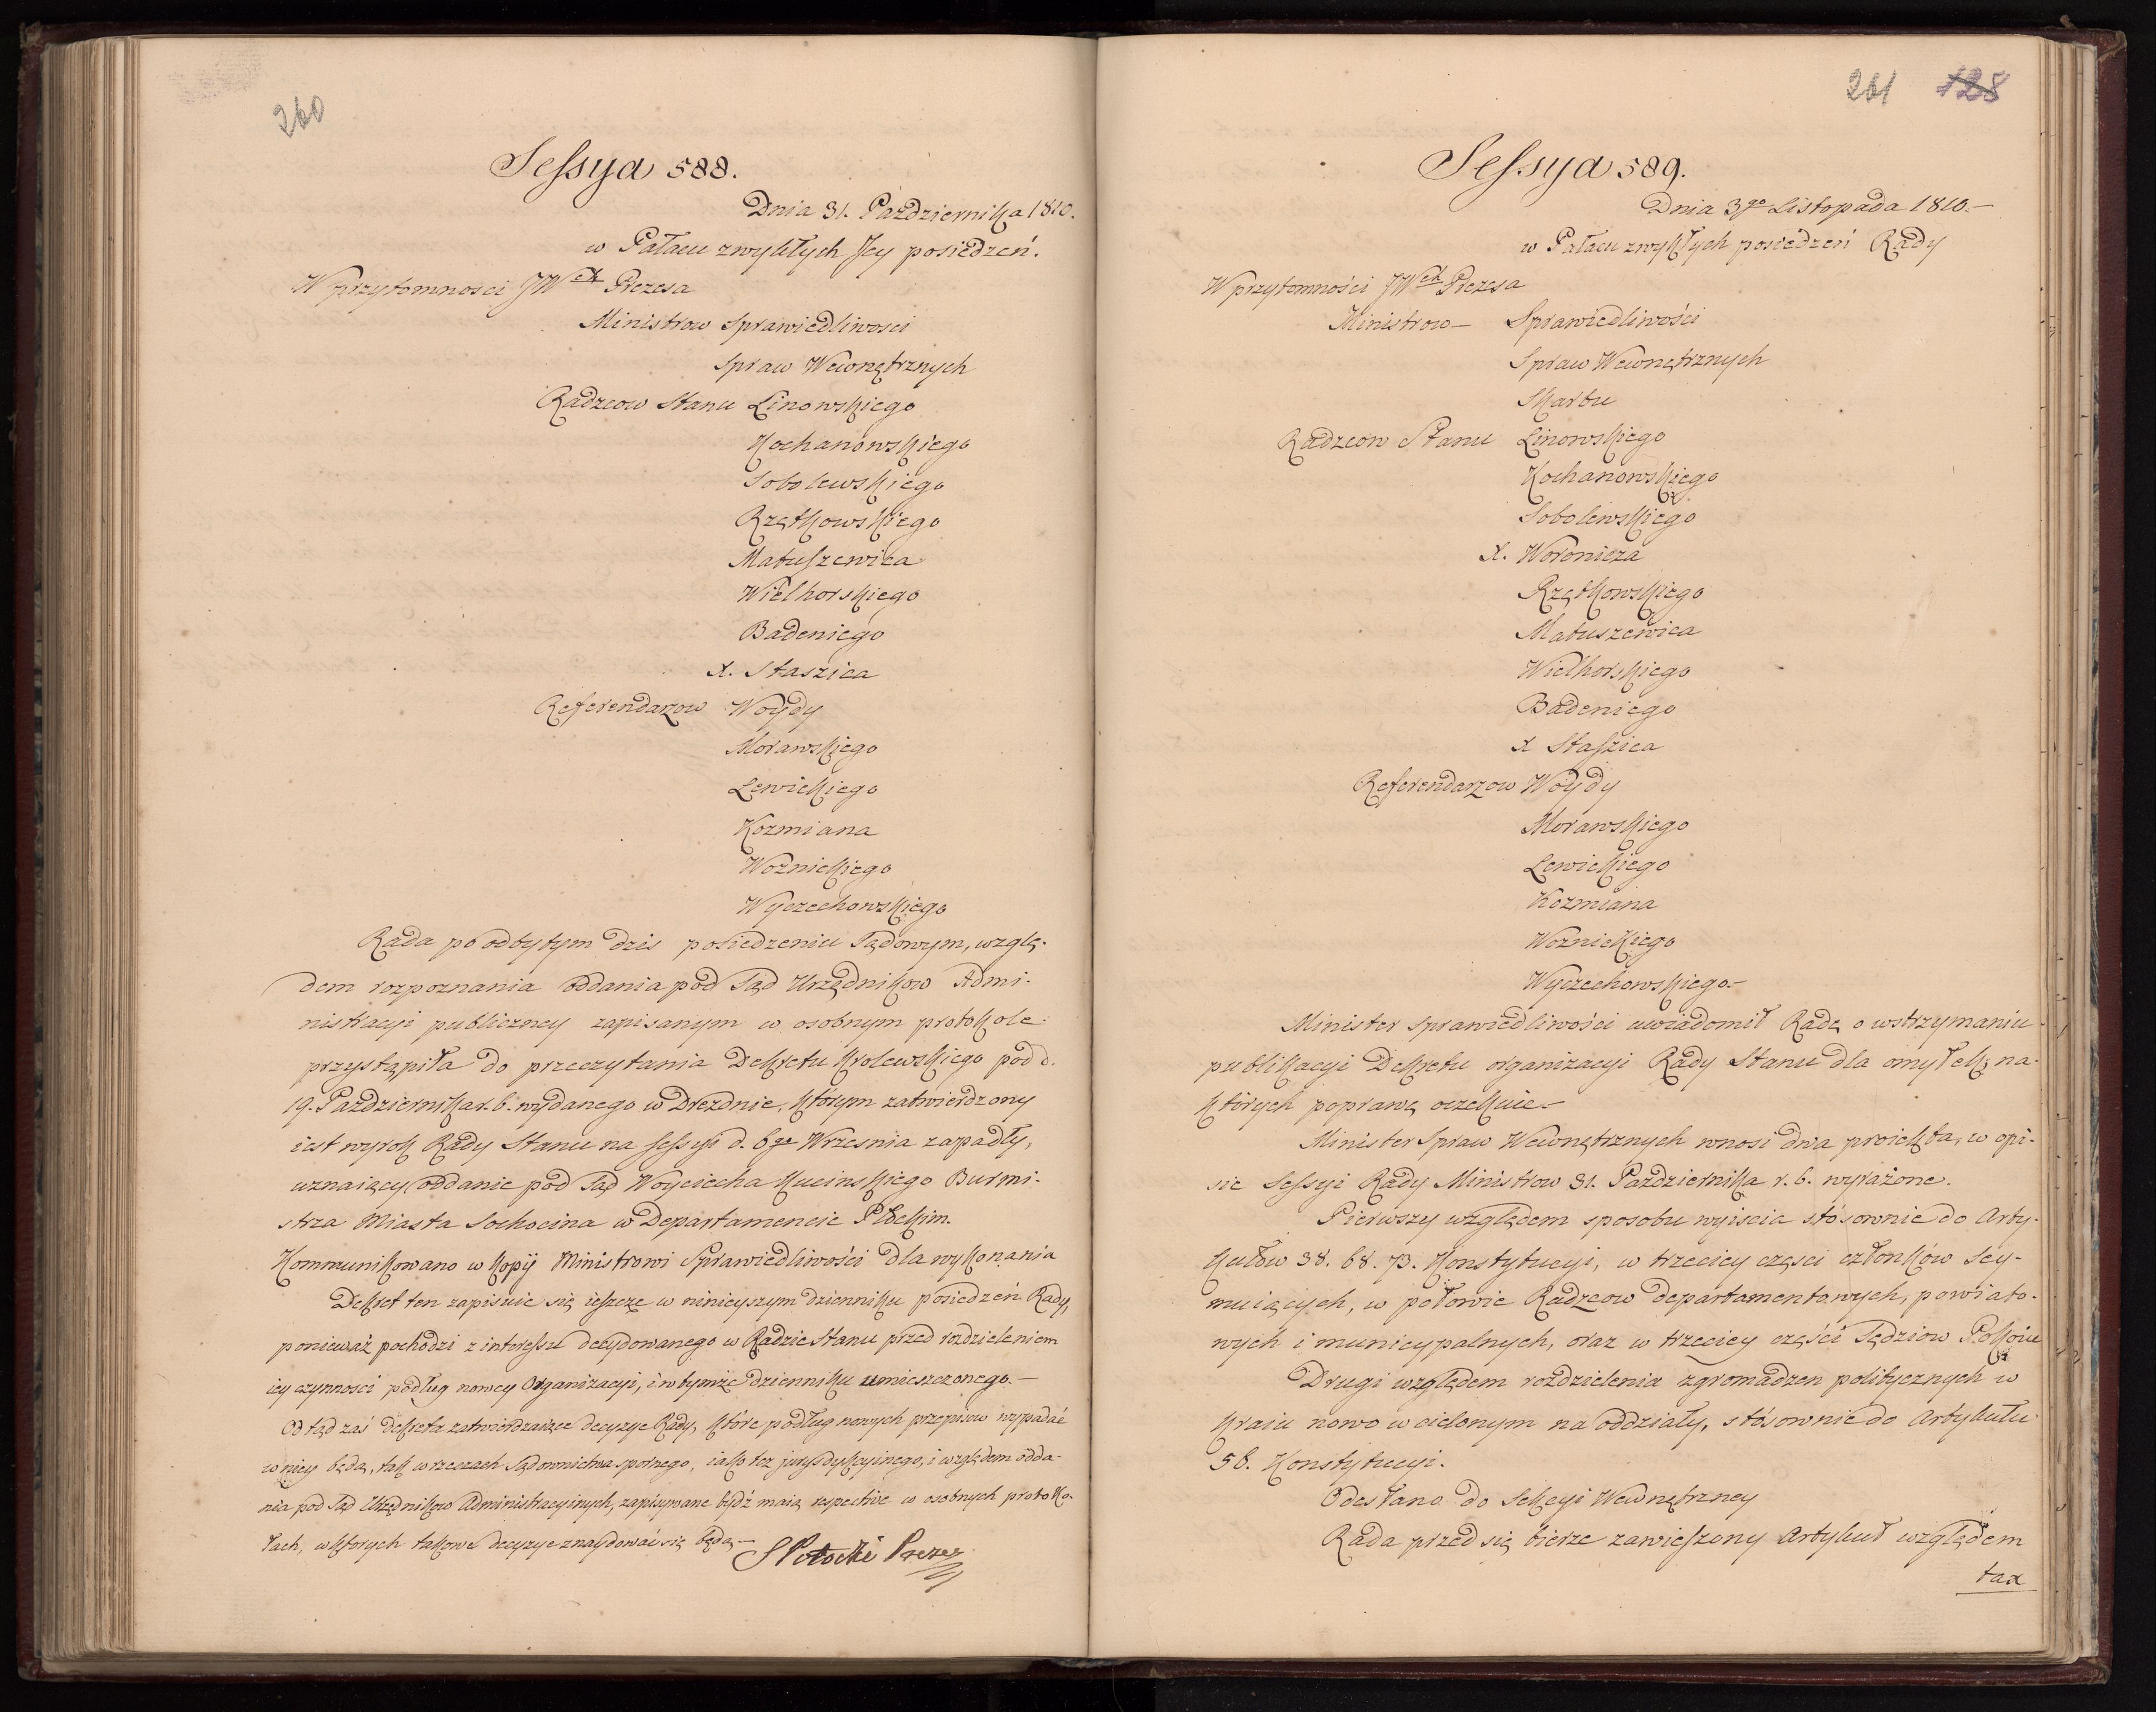 260
Sessya 588.
Dnia 31. Pazdziernika 1810.
w Pałacu zwykłych Jey posiedzeń.
W przytomnosci JWch Prezesa
Ministrow Sprawiedliwosci
Spraw Wewnętrznych
Radzcow Stanu Linowskiego
Kochanowskiego
Sobolewskiego
Rzętkowskiego
Matuszewica
Wielhorskiego
Badeniego
X. Staszica
Referendarzow Woydy
Morawskiego
Lewickiego
Kozmiana
Woznickiego
Wyczechowskiego
Rada po odbytym dzis posiedzeniu Sądowym, wzglę-
dem rozpoznania oddania pod Sąd Urzędnikow Admi-
nistracyi publiczney zapisanym w osobnym protokole
przystąpiła do przeczytania Dekretu Krolewskiego pod d.
19. Pazdziernika r. b. wydanego w Dreznie, którym zatwierdzony
iest wyrok Rady Stanu na Sessyi d. 6go Wrzesnia zapadły,
uznaiący oddanie pod Sąd Woyciecha Kucinskiego Burmi-
strza Miasta Sochocina w Departamencie Płockim.
Kommunikowano w kopij Ministrowi Sprawiedliwości dla wykonania
Dekret ten zapisuie się ieszcze w ninieyszym dzienniku posiedzeń Rady,
ponieważ pochodzi z interessu decydowanego w Radzie Stanu przed rozdzieleniem
iey czynnosci podług nowey Organizacyi, i w tymże dzienniku umieszczonego.—
Odtąd zaś dekreta zatwierdzaiące decyzye Rady, które podług nowych przepisow wypadać
w niey będą, tak w rzeczach Sądownictwa spornego, iako tez juryzdykcyinego, i względem odda-
nia pod Sąd Urzędnikow Administracyinych, zapisywane bydź maią respective w osobnych protoko-
łach, w których takowe decyzye znaydować się będą.—
S Potocki Prezes
261 128
Sessya 589.
Dnia 3go Listopada 1810.—
w Pałacu zwykłych posiedzeń Rady
W przytomności JWch Prezesa
Ministrow — Sprawiedliwości
Spraw Wewnętrznych
Skarbu
Radzcow Stanu Linowskiego
Kochanowskiego
Sobolewskiego
X. Woronicza
Rzętkowskiego
Matuszewica
Wielhorskiego
Badeniego
X Staszica
Referendarzow Woydy
Morawskiego
Lewickiego
Kozmiana
Woznickiego
Wyczechowskiego.—
Minister Sprawiedliwości uwiadomił Radę o wstrzymaniu
publikacyi Dekretu organizacyi Rady Stanu dla omyłek, na
których poprawę oczekuie.—
Minister Spraw Wewnętrznych wnosi dwa proiekta, w opi-
sie Sessyi Rady Ministrow 31. Pazdziernika r. b. wyrażone.
Pierwszy względem sposobu wyiscia stósownie do Arty-
kułów 38. 68. 73. Konstytucyi, w trzeciey częsci członków Sey-
muiących, w połowie Radzcow departamentowych, powiato-
wych i municypalnych, oraz w trzeciey części Sędziow Pokoiu
Drugi względem rozdzielenia zgromadzen politycznych w
kraiu nowo wcielonym na oddziały, stósownie do Artykułu
58. Konstytucyi.
Odesłano do Sekcyi Wewnętrzney
Rada przed się bierze zawieszony Artykuł względem
tax